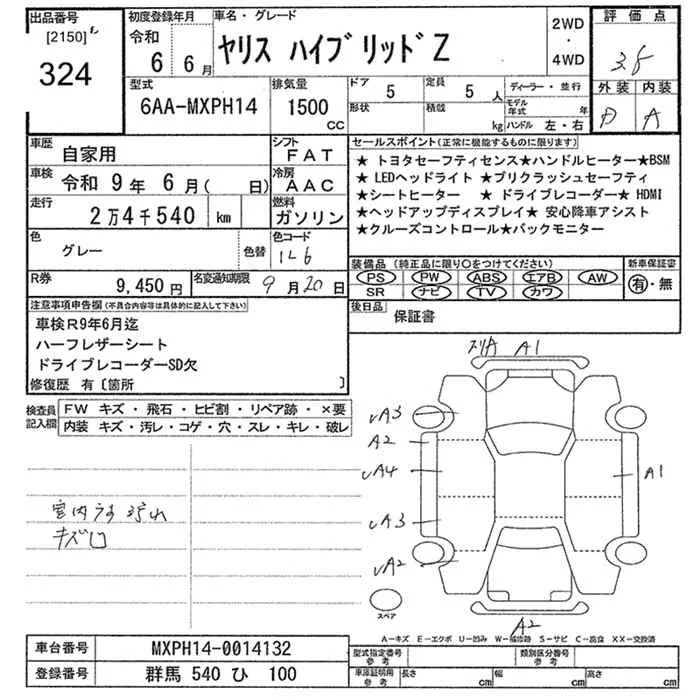 出品番号
[2150]
324
初度登録年月
令和
6 6月
車名・グレード
ヤリス ハイブリッドZ
2WD
・
4WD
評価点
3.5
外装 内装
D A
型式
6AA-MXPH14
排気量
1500
CC
ドア
5
定員
5 人
形状
積載
kg
ディーラー・並行
モデル年式 年
ハンドル 左・右
車歴
自家用
シフト
FAT
車検 令和 9年 6月( 日)
冷房
AAC
走行
2万4千540 km
燃料
ガソリン
色
グレー
色替
色コード
1L6
R券
9,450円
名変通知期限
9月20日
セールスポイント(正常に機能するものに限ります)
★ トヨタセーフティセンス★ハンドルヒーター★BSM
★ LEDヘッドライト ★プリクラッシュセーフティ
★シートヒーター ★ ドライブレコーダー★ HDMI
★ヘッドアップディスプレイ★ 安心降車アシスト
★クルーズコントロール★バックモニター
装備品 (純正品に限り○をつけてください)
PS PW ABS エアB AW
SR ナビ TV カワ
新車保証書
有・無
後日品
保証書
注意事項申告欄(不具合内容等は具体的に記入して下さい)
車検R9年6月迄
ハーフレザーシート
ドライブレコーダーSD欠
修復歴 有〔箇所 〕
検査員記入欄
FW キズ・飛石・ヒビ割・リペア跡・×要
内装 キズ・汚レ・コゲ・穴・スレ・キレ・破レ
室内うす汚れ
キズ
スリA A1
A3
A2
A4
A3
A2
A1
A2
スペア
A-キズ E-エクボ U-凹み W-補修跡 S-サビ C-腐食 XX-交換済
車台番号
MXPH14-0014132
登録番号
群馬 540 ひ 100
型式指定番号
参考
類別区分番号
参考
車庫証明用
参考
長さ cm
幅 cm
高さ cm